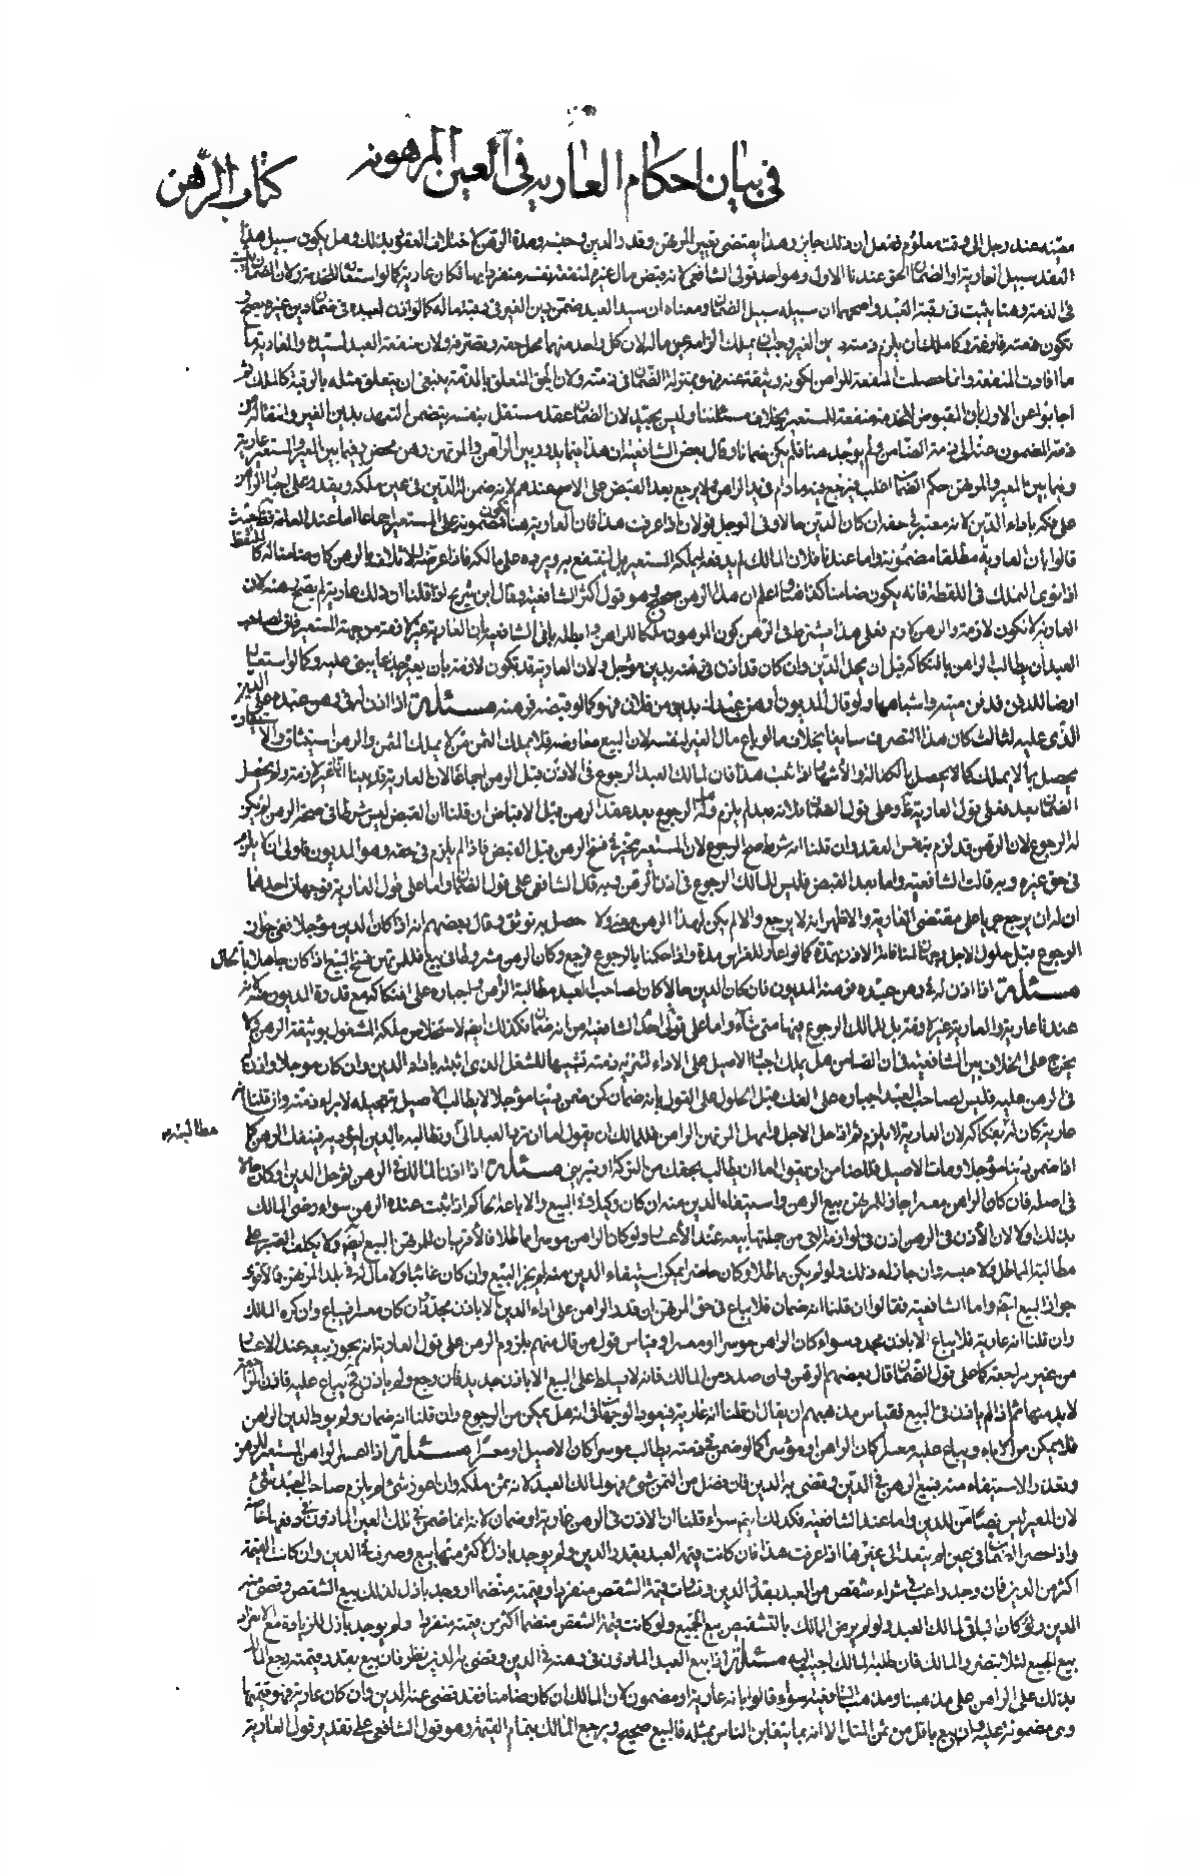 في بيان احكام العارية في العين المرهونه
كتاب الرهن
معيّنه عند رجل الى وقت معلوم ففعل ان ذلك جايز وهذا يقتضى تعيين المرتهن وقدر الدين وجنسه ومدة الرهن لاختلاف العقود بذلك وهل يكون سبيل هذا
العقد سبيل العارية او الضمان الحق عندنا الاول وهو احد قولى الشافعى لانه قبض مال غيره لمنفعة نفسه منفردا بها فكان عارية كما لو استعاره للخدمة وكان الضمان يثبت
فى الذمة وهنا يثبت فى رقبة العبد واصحهما ان سبيله سبيل الضمان ومعناه ان سيد العبد ضمن دين الغير فى رقبة ماله كما لو اذن لعبده فى ضمان دين غيره يصح و
تكون ذمته فارغة وكما ملك ان يلزم ذمته دين الغير وجب ان يملك الزامه عين ماله لان كل واحد منهما محل حقه وتصرفه ولان منفعة العبد لسيده والعارية ما
ما افادت المنفعة وانما حصلت المنفعة للراهن لكونه وثيقة عنه فهو بمنزلة الضمان فى ذمته ولان الحق المتعلق بالذمة ينبغى ان يتعلق مثله بالرقبة كالملك ثم
اجابوا عن الاول بان المقبوض للخدمة منفعة للمستعير بخلاف مسئلتنا وليس بجيّد لان الضمان عقد مستقل بنفسه يتضمن التعهد بدين الغير وانتقاله من
ذمة المضمون عنه الى ذمة الضامن ولم يوجد هنا فلم يكن ضمانا وقال بعض الشافعية ان هذا فيما يدور بين الراهن والمرتهن رهن محض وفيما بين المعير والمستعير عارية
وفيما بين المعير والمرتهن حكم الضمان اغلب فيرجع فيه ما دام فى يد الراهن ولا يرجع بعد القبض على الاصح عندهم لانه ضمن له الدين فى عين ملكه ويقدر على اجبار الراهن
على فكه باداء الدين لانه معير فى حقه ان كان الدين حالا وفى المؤجل قولان اذا عرفت هذا فان العارية هنا تكون مضمونة على المستعير اجماعا اما عند العامة فحيث
قالوا بان العارية مطلقا مضمونة واما عندنا فلان المالك لم يدفعه ليملكه المستعير بل لينتفع به ويرده على مالكه فاذا عرضه للاتلاف بالرهن كان ضامنا له كالملتقط
اذا نوى التملك فى اللقطة فانه يكون ضامنا كذا هنا واعلم ان هذا الرهن صحيح وهو قول اكثر الشافعية وقال ابن شريح اذا قلنا ان ذلك عارية لم يصح رهنه لان
العارية لا تكون لازمة والرهن لازم فعلى هذا يشترط فى الرهن كون المرهون ملكا للراهن وابطله باقى الشافعية بان العارية غير لازمة من جهة المستعير فان لصاحب
العبد ان يطالب الراهن بافتكاكه قبل ان يحل الدين وان كان قد اذن فى رهنه بدين مؤجل ولان العارية قد تكون لازمة بان يعيره جذعا يبنى عليه وكما لو استعار
ارضا للدفن فدفن ميته واشباههما ولو قال المديون ارهن عبدك بدينى من فلان فهو كما لو قبضه فرهنه مسئلة اذا اذن له فى رهن عبده على الدين
الذى عليه لثالث كان هذا التصرف سايغا بخلاف ما لو باع مال الغير لنفسه لان البيع معاوضة فلا يملك الثمن من لا يملك المثمن والرهن استيثاق والاستيثاق
يحصل بما لا يملك كما لا يحصل بالكفالة والاشهاد اذا ثبت هذا فان لمالك العبد الرجوع فى الاذن قبل الرهن اجماعا لان العارية قد بينا انها غير لازمة ولم يحصل
الضمان بعد فعلى قول العارية ظاهر وعلى قول الضمان فلانه بعد لم يلزم وله الرجوع بعد عقد الرهن قبل الاقباض ان قلنا ان القبض ليس شرطا فى صحة الرهن لم يكن
له الرجوع لان الرهن قد لزم بنفس العقد وان قلنا انه شرط صح الرجوع لان المستعير مخير فى فسخ الرهن قبل القبض فاذا لم يلزم فى حقه وهو المديون فاولى ان لا يلزم
فى حق غيره وبه قالت الشافعية واما بعد القبض فليس للمالك الرجوع فى اذن الرهن وبه قال الشافعى على قول الضمان واما على قول العارية فوجهان احدهما
ان له ان يرجع جريا على مقتضى العارية والاظهر انه لا يرجع والا لم يكن لهذا الرهن معنى ولا حصل به توثق وقال بعضهم انه اذا كان الدين مؤجلا ففى جواز
الرجوع قبل حلول الاجل وجهان لما فيه من الاذن بمدة كما لو اعار للغراس مدة واذا حكمنا بالرجوع فرجع وكان الرهن مشروطا فى بيع فللمرتهن فسخ البيع اذا كان جاهلا بالحال
مسئلة اذا اذن له فى رهن عبده فرهنه المديون فان كان الدين حالا كان لصاحب العبد مطالبة الراهن باجباره على افتكاكه مع قدرة المديون عليه لانه
عندنا عارية والعارية غير لازمة بل للمالك الرجوع فيها متى شاء واما على قول احد الشافعية من انه ضمان فكذلك ايضا لاستخلاص ملكه المشغول بوثيقة الرهن كما
يخرج على الخلاف بين الشافعية فى ان الضامن هل يملك اجبار الاصيل على الاداء لتبرئة ذمته تشبيها للشغل الذى اثبته باداء الدين وان كان مؤجلا واذن له
فى الرهن عليه فليس لصاحب العبد اجباره على الفك قبل الحلول على القول بانه ضمان كمن ضمن دينا مؤجلا لا يطالب الاصيل بتعجيله لابراء ذمته وان قلنا انه
عارية كان له مطالبته بفكه لان العارية لا يلزم
اذا ضمن دينا مؤجلا ومات الاصيل فللضامن ان يقول اما ان يطالب بحقك من التركة او تبريى مسئلة اذا اذن المالك فى الرهن فرحل الدين او كان حالا
فى اصله فان كان الراهن معسرا جاز للمرتهن بيع الرهن واستيفاء الدين منه ان كان وكيلا فى البيع والا باعه الحاكم اذا ثبت عنده الرهن سواء رضى المالك
بذلك او لا لان الاذن فى الرهن اذن فى لوازمه التى من جملتها بيعه عند الاعسار ولو كان الراهن موسرا مماطلا فالاقرب ان للمرتهن البيع ايضا ولا يكلف الصبر على
مطالبة المماطل ولا حبسه وان جاز له ذلك ولو لم يكن مماطلا وكان حاضرا يمكن استيفاء الدين منه لم يجز البيع وان كان غائبا ولا مال له فى بلد المرتهن فالاقوى
جواز البيع ايضا واما الشافعية فقالوا ان قلنا انه ضمان فلا يباع فى حق المرتهن ان قدر الراهن على اداء الدين الا باذن مجدد وان كان معسرا فيباع وان كره المالك
وان قلنا انه عارية فلا يباع الا باذن مجدد سواء كان الراهن موسرا او معسرا وقياس قول من قال منهم بلزوم الرهن على قول العارية انه يجوز بيعه عند الاعسار
من غير مراجعة كما على قول الضمان قال بعضهم الرهن وان صدر من المالك فانه لا يسلط على البيع الا باذن جديد فان رجع ولم ياذن فى يباع عليه فاذن المراجعة
لا بد منها ثم اذا لم ياذن فى البيع فقياس مذهبهم ان يقال ان قلنا انه عارية فيعود الوجهان فى انه هل يمكن من الرجوع وان قلنا انه ضمان ولم يود الدين الراهن
فلا يمكن من الاباء ويباع عليه معسرا كان الراهن او موسرا كما لو ضمن فى ذمته يطالب موسرا كان الاصيل او معسرا مسئلة اذا اعسر الراهن المستعير للرهن
وتعذر الاستيفاء منه فبيع الرهن فى الدين وقضى به الدين فان فضل من الثمن شىء فهو لمالك العبد لانه ثمن ملكه وان اعوز شىء لم يلزم صاحب العبد شىء
لان المعير ليس بضامن للدين واما عند الشافعية فكذلك ايضا سواء قلنا ان الاذن فى الرهن عارية او ضمان لانه انما ضمن فى تلك العين الماذون فى رهنها خاصة
واذا حصر الضمان فى عين لم يتعد الى غيرها اذا عرفت هذا فان كانت قيمة العبد بقدر الدين ولم يوجد باذل لاكثر منها بيع وصرف فى الدين وان كانت القيمة
اكثر من الدين فان وجد راغب فى شراء شقص من العبد بقدر الدين وكانت قيمة الشقص منفردا وقيمته منضما او وجد باذل لذلك بيع الشقص وقضى منه
الدين وكان الباقى لمالك العبد ولو لم يرض المالك بالتشقيص بيع الجميع ولو كانت قيمة الشقص منضما اكثر من قيمته منفردا ولم يوجد باذل للزيادة مع الانفراد
بيع الجميع لئلا يتضرر المالك فان طلبه المالك اجيب اليه مسئلة اذا بيع العبد الماذون فى رهنه فى الدين وقضى به الدين نظر فان بيع بقدر قيمته رجع المالك
بذلك على الراهن على مذهبنا ومذهب الشافعية سواء قالوا بانه عارية او مضمون لان المالك ان كان ضامنا فقد قضى عنه الدين وان كان عارية فهو قيمتها
وهى مضمونة عليه وان بيع باقل من ثمن المثل الا انه بما يتغابن الناس بمثله فالبيع صحيح ويرجع المالك بتمام القيمة وهو قول الشافعى على تقدير قول العارية
مطالبته